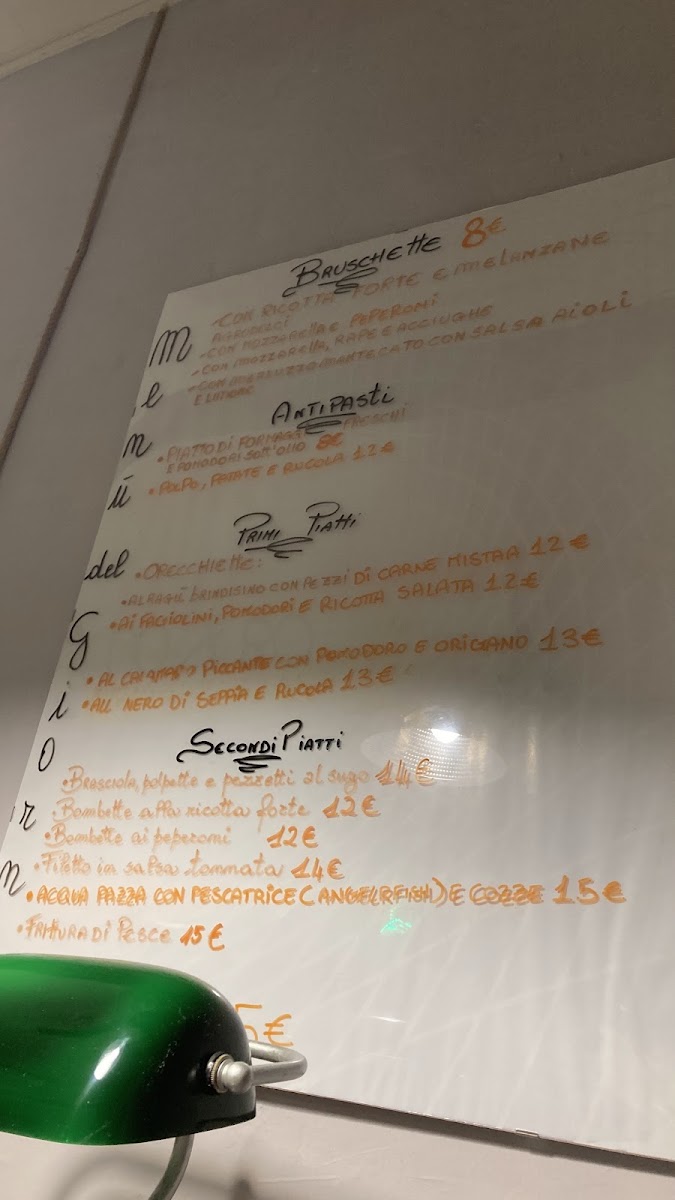 BRUSCHETTE 8€
- CON RICOTTA FORTE E MELANZANE
AGRODOLCI
- CON MOZZARELLA E PEPERONI
- CON MOZZARELLA, RAPE E ACCIUGHE
- CON MERLUZZO MANTECATO CON SALSA AIOLI
E LIMONE
ANTIPASTI
• PIATTO DI FORMAGGI FRESCHI
E POMODORI SOTT'OLIO 8€
• POLPO, PATATE E RUCOLA 12€
PRIMI PIATTI
• ORECCHIETTE:
• AL RAGÙ BRINDISINO CON PEZZI DI CARNE MISTAA 12€
• AI FAGIOLINI, POMODORI E RICOTTA SALATA 12€
• AL CALAMARO PICCANTE CON POMODORO E ORIGANO 13€
• ALL NERO DI SEPPIA E RUCOLA 13€
SECONDI PIATTI
• Brasciola, polpette e pezzetti al sugo 14€
Bombette alla ricotta forte 12€
• Bombette ai peperoni 12€
• Filetto in salsa tonnata 14€
• ACQUA PAZZA CON PESCATRICE (ANGELRFISH) E COZZE 15€
• FRITTURA DI PESCE 15€
5€
Menù del Giorn